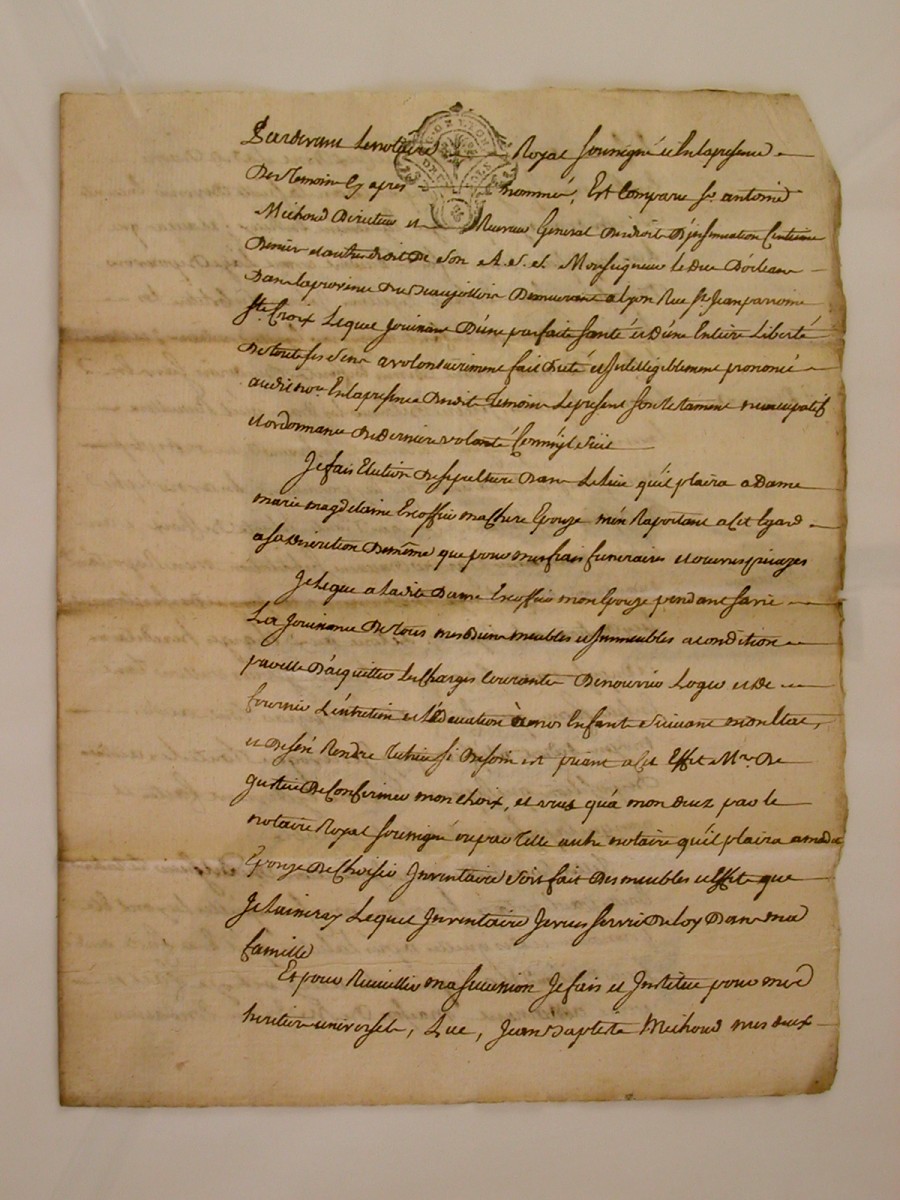 Pardevant Le notaire Royal soussigné et En la presence
Des temoins Cy apres nommés, Est Comparu Sr. antoine
Michoud Directeur et Receveur General Des droits D'insinuation Centieme
Denier et autres droits De Son A. S. et Monseigneur Le Duc D'orleans
Dans la province Du Beaujollois Demeurant a Lyon Rue St. Jean parroisse
Ste. Croix Lequel Jouissant D'une parfaite Santé et D'une Entiere Liberté
De tous ses Sens a volontairement fait Dicté et Intelligiblement prononcé
audit no.re En la presence Desdits temoins Le present Son testament nuncupatif
et ordonnance De Derniere volonté Comme s'ensuit
Je fais Election De sepulture Dans Le Lieu qu'il plaira a Dame
marie magdelaine Escoffier ma Chere Epouze m'en Raportant a Cet Egard
a sa Discretion De même que pour mes frais funeraires et oeuvres pieuzes
Je Legue a Ladite Dame Escoffier mon Epouze pendant sa vie
La Jouissance De tous mes Biens meubles et Immeubles a condition
par elle D'acquitter Les Charges Courantes De nourrir Loger et De
fournir L'entretien et L'Education à nos Enfants Suivant mon Etat,
et De s'en Rendre tutrice si Besoin est priant a Cet Effet Mrs. De
Justice De Confirmer mon choix, et veux qu'a mon deces par le
notaire Royal soussigné ou par telle autre notaire qu'il plaira a madte
Epouze De Choisir Inventaire Soit fait Des meubles et Effets que
Je Laisseray Lequel Inventaire Je veux servir De Loy Dans ma
famille
Et pour Recueillir ma succession Je fais et Institue pour mes
heritiers universels, Luc, Jean Baptiste Michoud mes deux